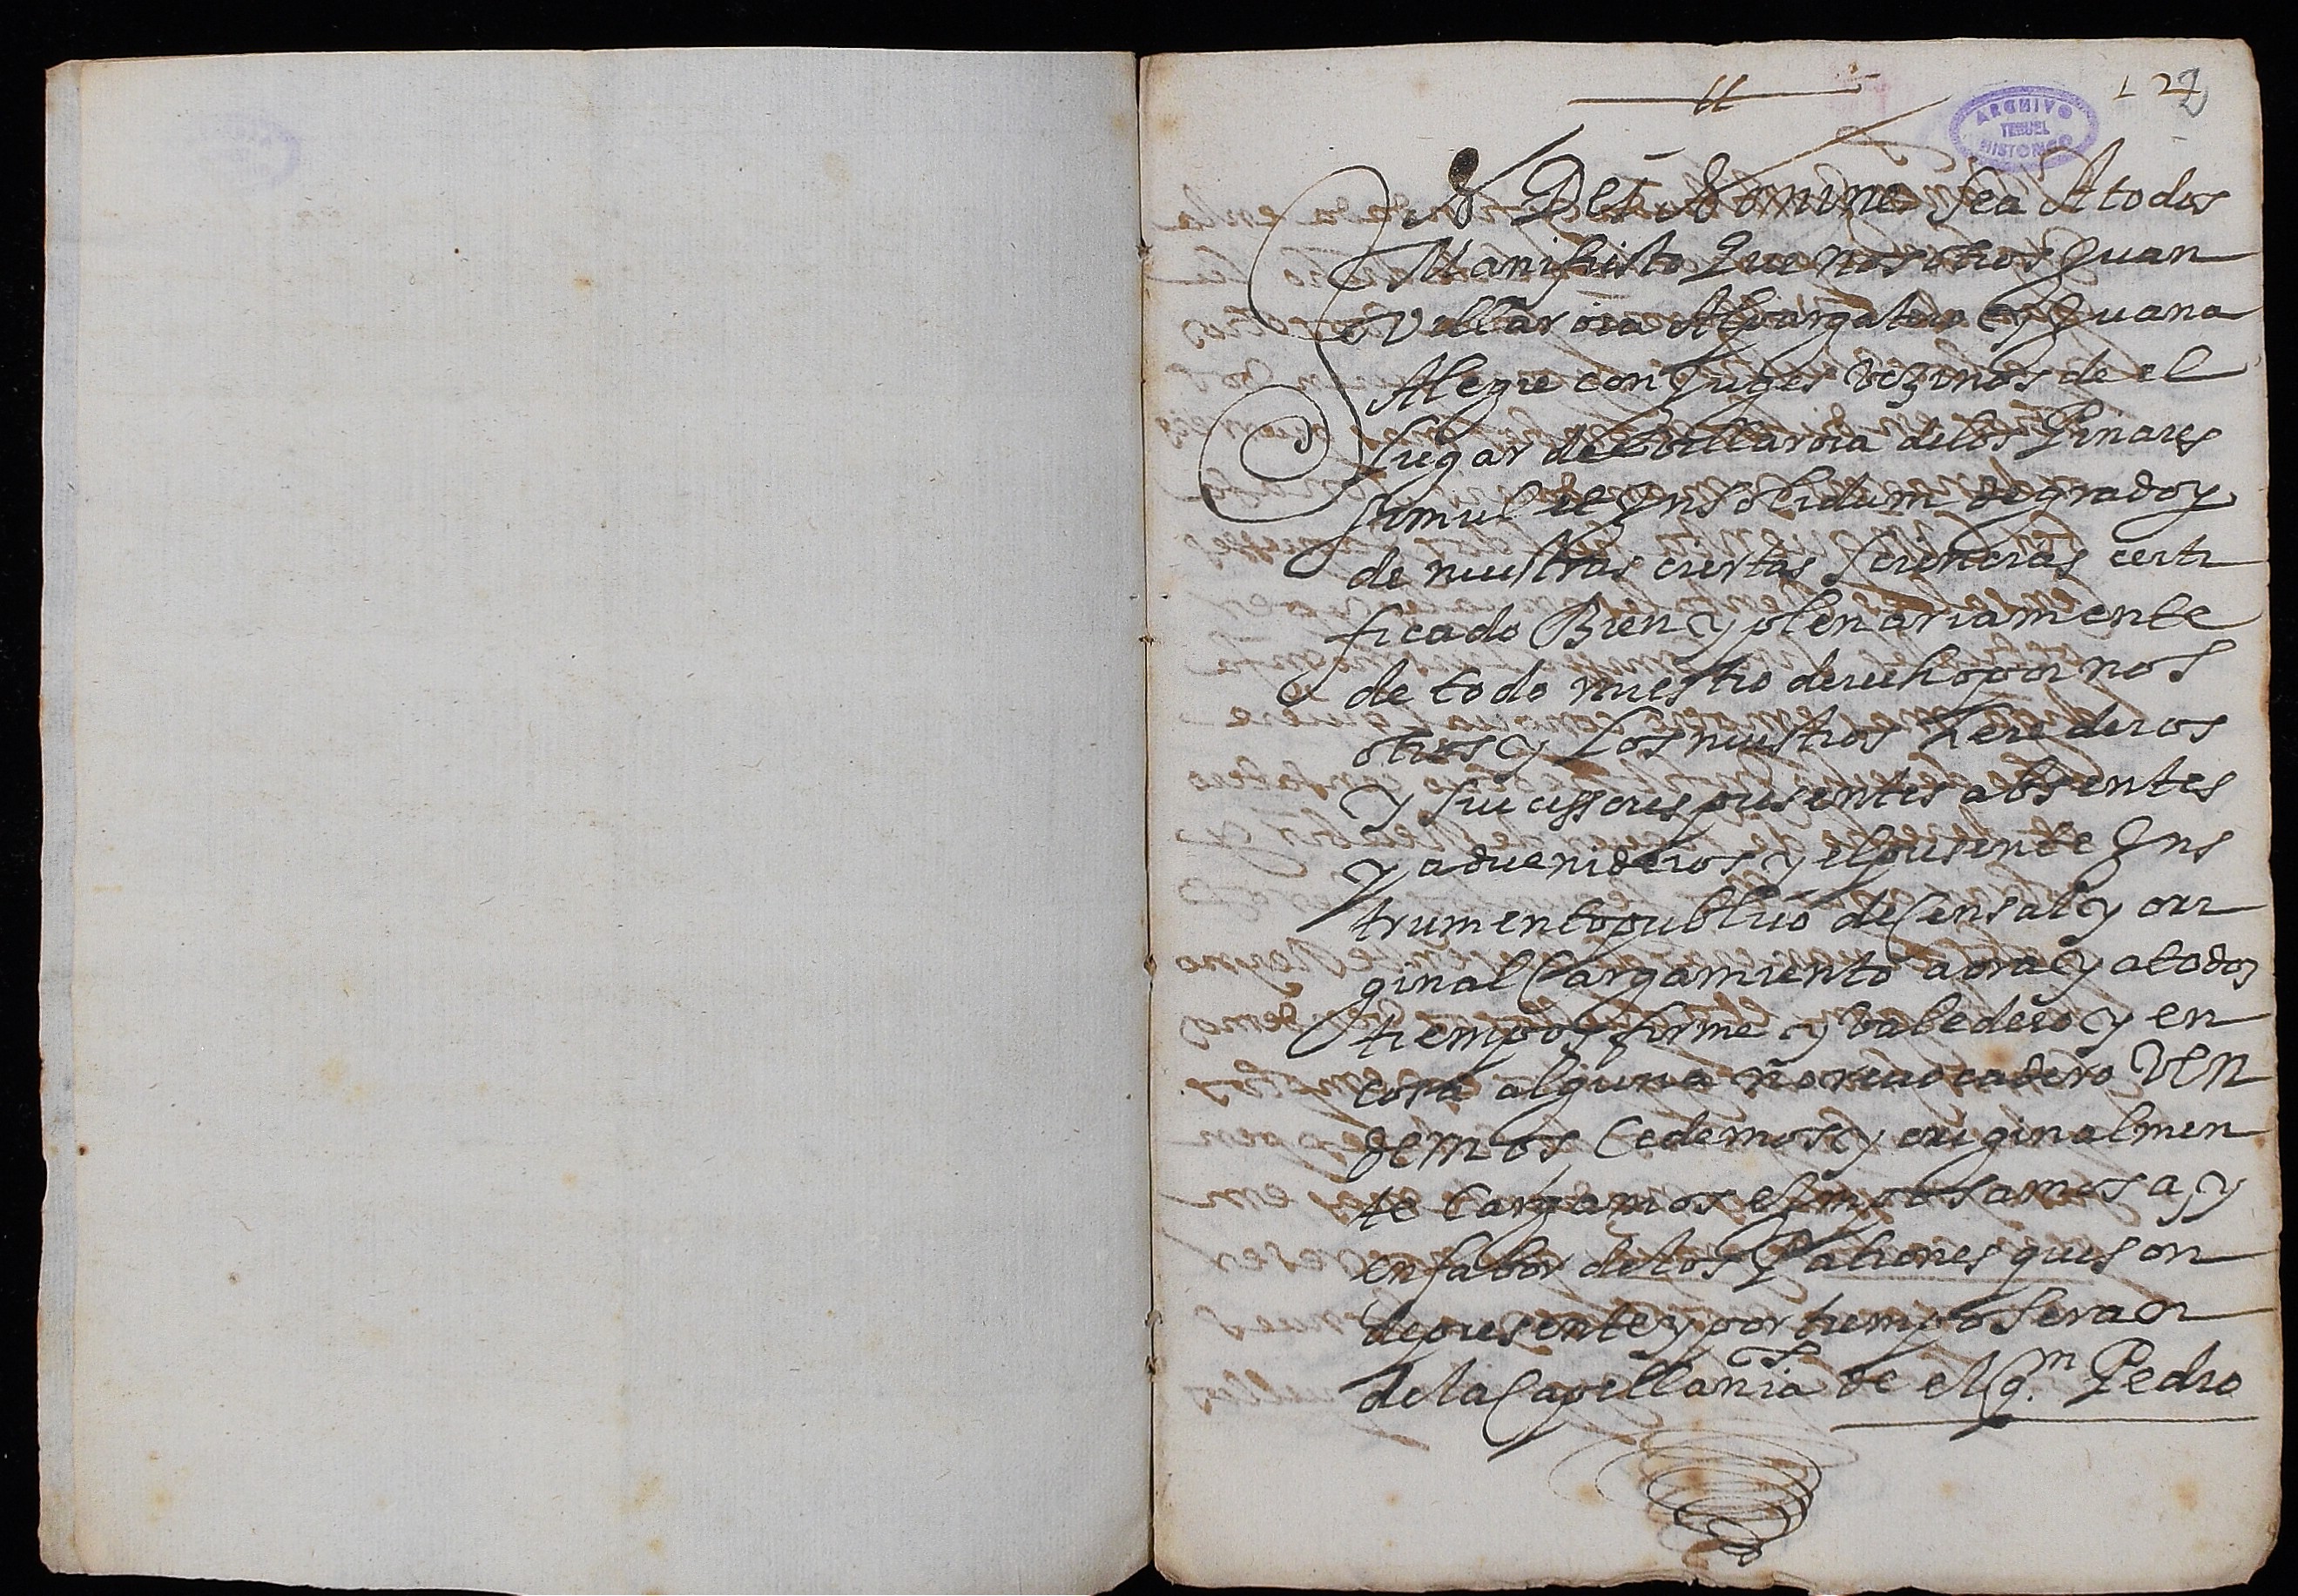 122
ARCHIVO
TERUEL
HISTORICO
Dei Nomine Sea A todos
Manifiesto Que nosotros Juan
Villaroia Alpargatero y Juana
Alegre conjuges vezinos de el
lugar de Villaroia de los Pinares
simul et Insolidum de grado y
de nuestras ciertas sciencias certi
ficado Bien y plenariamente
de todo nuestro derecho por nos
otros y los nuestros herederos
y sucessores presentes absentes
y advenideros y el presente Ins
trumento publico de Censal y ori
ginal Cargamiento aora y a todos
tiempos firme y valedero y en
cosa alguna no revocadero Ven
demos Cedemos y originalmen
te Cargamos e Imposamos a, y
en fabor de los Patrones que son
de presente y por tiempo seran
de la Capellania de el qm. Pedro